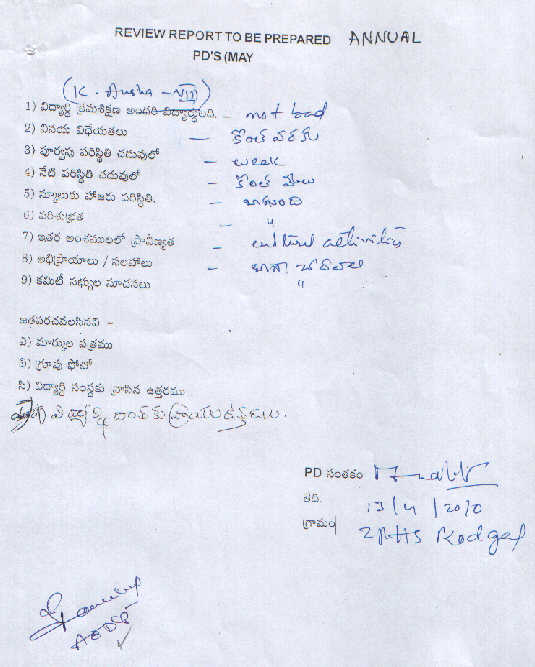 REVIEW REPORT TO BE PREPARED ANNUAL
PD'S (MAY
(K. Anusha - VIII)
1) విద్యార్థి క్రమశిక్షణ - not bad
2) వినయ విధేయతలు - కొంత వరకు
3) పూర్వపు పరిస్థితి చదువులో - weak
4) నేటి పరిస్థితి చదువులో - కొంత మేలు
5) స్కూలుకు హాజరు పరిస్థితి. - బాగుంది
6) పరిశుభ్రత - "
7) ఇతర అంశములలో ప్రావీణ్యత - cultural activities
8) అభిప్రాయాలు / సలహాలు - బాగా చదవాలి
9) కమిటీ సభ్యుల సూచనలు "
జతపరచవలసినవి -
ఎ) మార్కుల పత్రము
బి) గ్రూపు ఫోటో
సి) విద్యార్థి సంస్థకు వ్రాసిన ఉత్తరము
PD సంతకం
తేది. 13/4/2010
గ్రామం ZPHS Kodgal